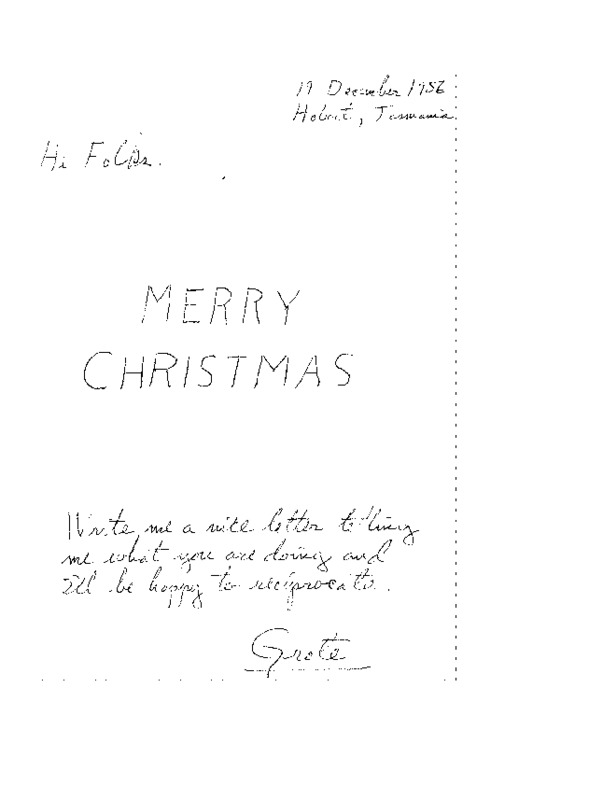 19 December 1956
Hobart, Tasmania
Hi Folks.
MERRY
CHRISTMAS
Write me a nice letter telling
me what you are doing and
I'll be happy to reciprocate.
Grote